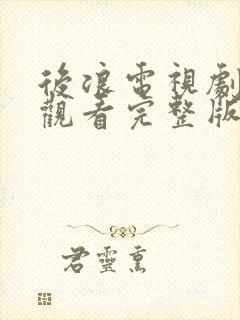 後浪電視劇
觀看完整版
君靈熏